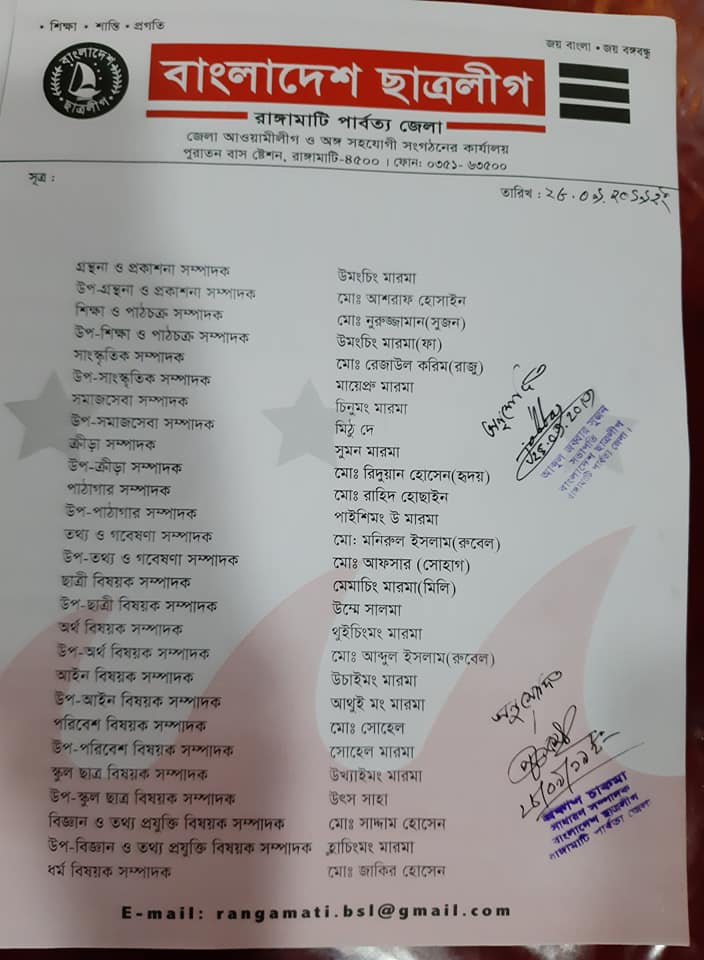 • শিক্ষা • শান্তি • প্রগতি
জয় বাংলা • জয় বঙ্গবন্ধু
বাংলাদেশ
ছাত্রলীগ
বাংলাদেশ ছাত্রলীগ
রাঙ্গামাটি পার্বত্য জেলা
জেলা আওয়ামীলীগ ও অঙ্গ সহযোগী সংগঠনের কার্যালয়
পুরাতন বাস ষ্টেশন, রাঙ্গামাটি-৪৫০০ । ফোন: ০৩৫১-৬৩৫০০
সূত্র :
তারিখ :
গ্রন্থনা ও প্রকাশনা সম্পাদক উমংচিং মারমা
উপ-গ্রন্থনা ও প্রকাশনা সম্পাদক মোঃ আশরাফ হোসাইন
শিক্ষা ও পাঠচক্র সম্পাদক মোঃ নুরুজ্জামান(সুজন)
উপ-শিক্ষা ও পাঠচক্র সম্পাদক উমংচিং মারমা(ফা)
সাংস্কৃতিক সম্পাদক মোঃ রেজাউল করিম(রাজু)
উপ-সাংস্কৃতিক সম্পাদক মায়েপ্রু মারমা
সমাজসেবা সম্পাদক চিনুমং মারমা
উপ-সমাজসেবা সম্পাদক মিঠু দে
ক্রীড়া সম্পাদক সুমন মারমা
উপ-ক্রীড়া সম্পাদক মোঃ রিদুয়ান হোসেন(হৃদয়)
পাঠাগার সম্পাদক মোঃ রাহিদ হোছাইন
উপ-পাঠাগার সম্পাদক পাইশিমং উ মারমা
তথ্য ও গবেষণা সম্পাদক মো: মনিরুল ইসলাম(রুবেল)
উপ-তথ্য ও গবেষণা সম্পাদক মোঃ আফসার (সোহাগ)
ছাত্রী বিষয়ক সম্পাদক মেমাচিং মারমা(মিলি)
উপ-ছাত্রী বিষয়ক সম্পাদক উম্মে সালমা
অর্থ বিষয়ক সম্পাদক থুইচিংমং মারমা
উপ-অর্থ বিষয়ক সম্পাদক মোঃ আব্দুল ইসলাম(রুবেল)
আইন বিষয়ক সম্পাদক উচাইমং মারমা
উপ-আইন বিষয়ক সম্পাদক আথুই মং মারমা
পরিবেশ বিষয়ক সম্পাদক মোঃ সোহেল
উপ-পরিবেশ বিষয়ক সম্পাদক সোহেল মারমা
স্কুল ছাত্র বিষয়ক সম্পাদক উখ্যাইমং মারমা
উপ-স্কুল ছাত্র বিষয়ক সম্পাদক উৎস সাহা
বিজ্ঞান ও তথ্য প্রযুক্তি বিষয়ক সম্পাদক মোঃ সাদ্দাম হোসেন
উপ-বিজ্ঞান ও তথ্য প্রযুক্তি বিষয়ক সম্পাদক হ্লাচিংমং মারমা
ধর্ম বিষয়ক সম্পাদক মোঃ জাকির হোসেন
অনুমোদিত
আব্দুল জব্বার সুজন
সভাপতি
বাংলাদেশ ছাত্রলীগ
রাঙ্গামাটি পার্বত্য জেলা।
অনুমোদিত
প্রকাশ চাকমা
সাধারণ সম্পাদক
বাংলাদেশ ছাত্রলীগ
রাঙ্গামাটি পার্বত্য জেলা
E-mail: rangamati.bsl@gmail.com